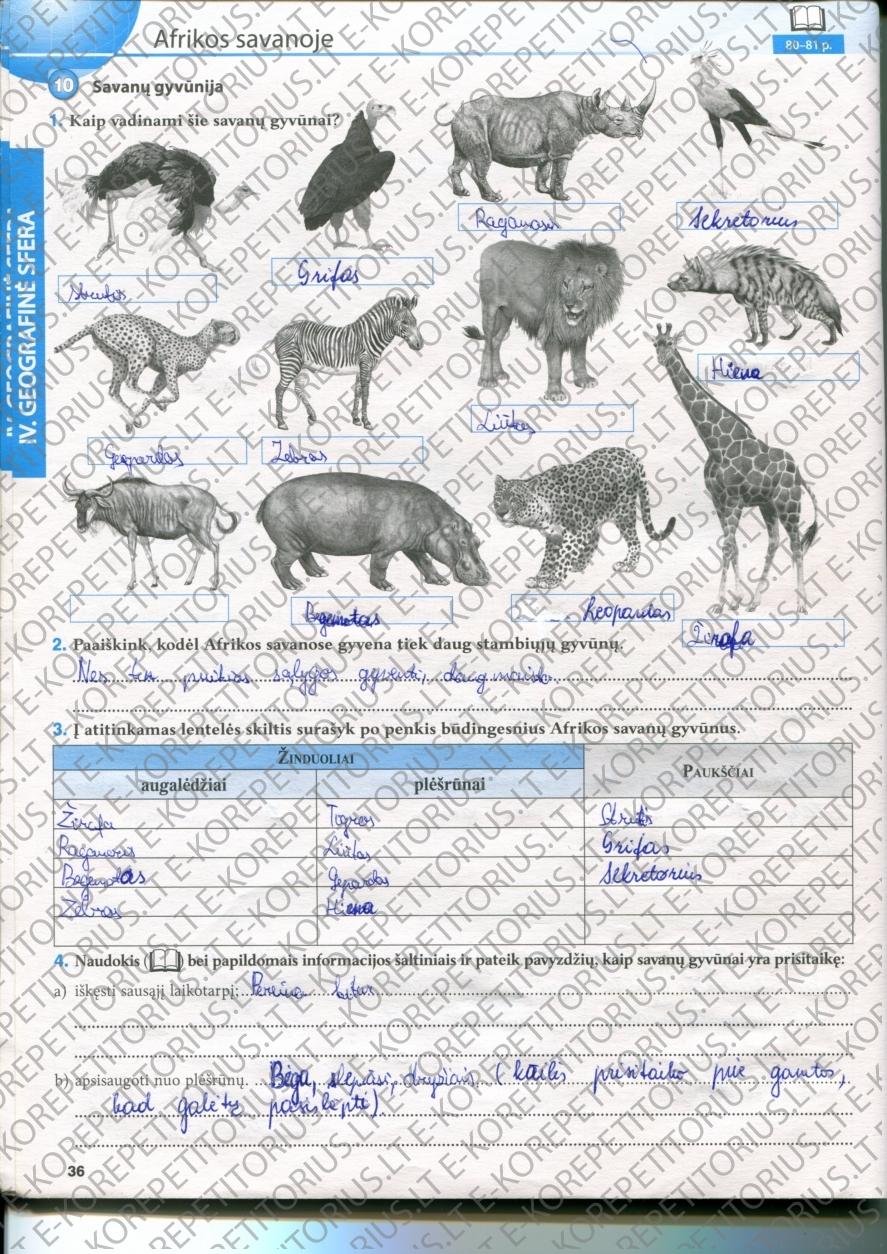 Afrikos savanoje
80–81 p.
10 Savanų gyvūnija
1. Kaip vadinami šie savanų gyvūnai?
IV. GEOGRAFINĖ SFERA
Raganosis
Sekretorius
Strutis
Grifas
Hiena
Liūtas
Gepardas
Zebras
Begemotas
Leopardas
Žirafa
2. Paaiškink, kodėl Afrikos savanose gyvena tiek daug stambiųjų gyvūnų.
Nes ten puikios sąlygos gyventi, daug maisto
3. Į atitinkamas lentelės skiltis surašyk po penkis būdingesnius Afrikos savanų gyvūnus.
ŽINDUOLIAI
PAUKŠČIAI
augalėdžiai plėšrūnai
Žirafa Tigras Strutis
Raganosis Liūtas Grifas
Begemotas Gepardas Sekretorius
Zebras Hiena
4. Naudokis ( ) bei papildomais informacijos šaltiniais ir pateik pavyzdžių, kaip savanų gyvūnai yra prisitaikę:
a) iškęsti sausąjį laikotarpį: Pereina kitur
b) apsisaugoti nuo plėšrūnų. Bėga, slepiasi, (kailis prisitaiko prie gamtos,
kad galėtų pasislėpti).
36
E-KOREPETITORIUS.LT